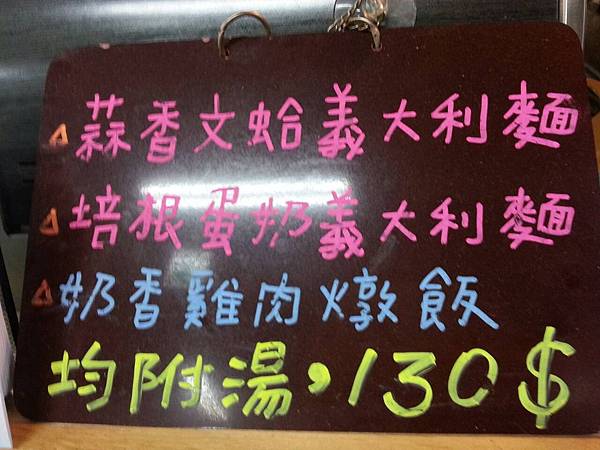 △蒜香文蛤義大利麵
△培根蛋奶義大利麵
△奶香雞肉燉飯
均附湯，130$